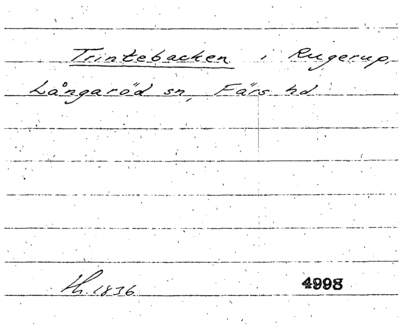 Trintebacken i Rugerup,
Långaröd sn, Färs hd
Hl. 1836 4998